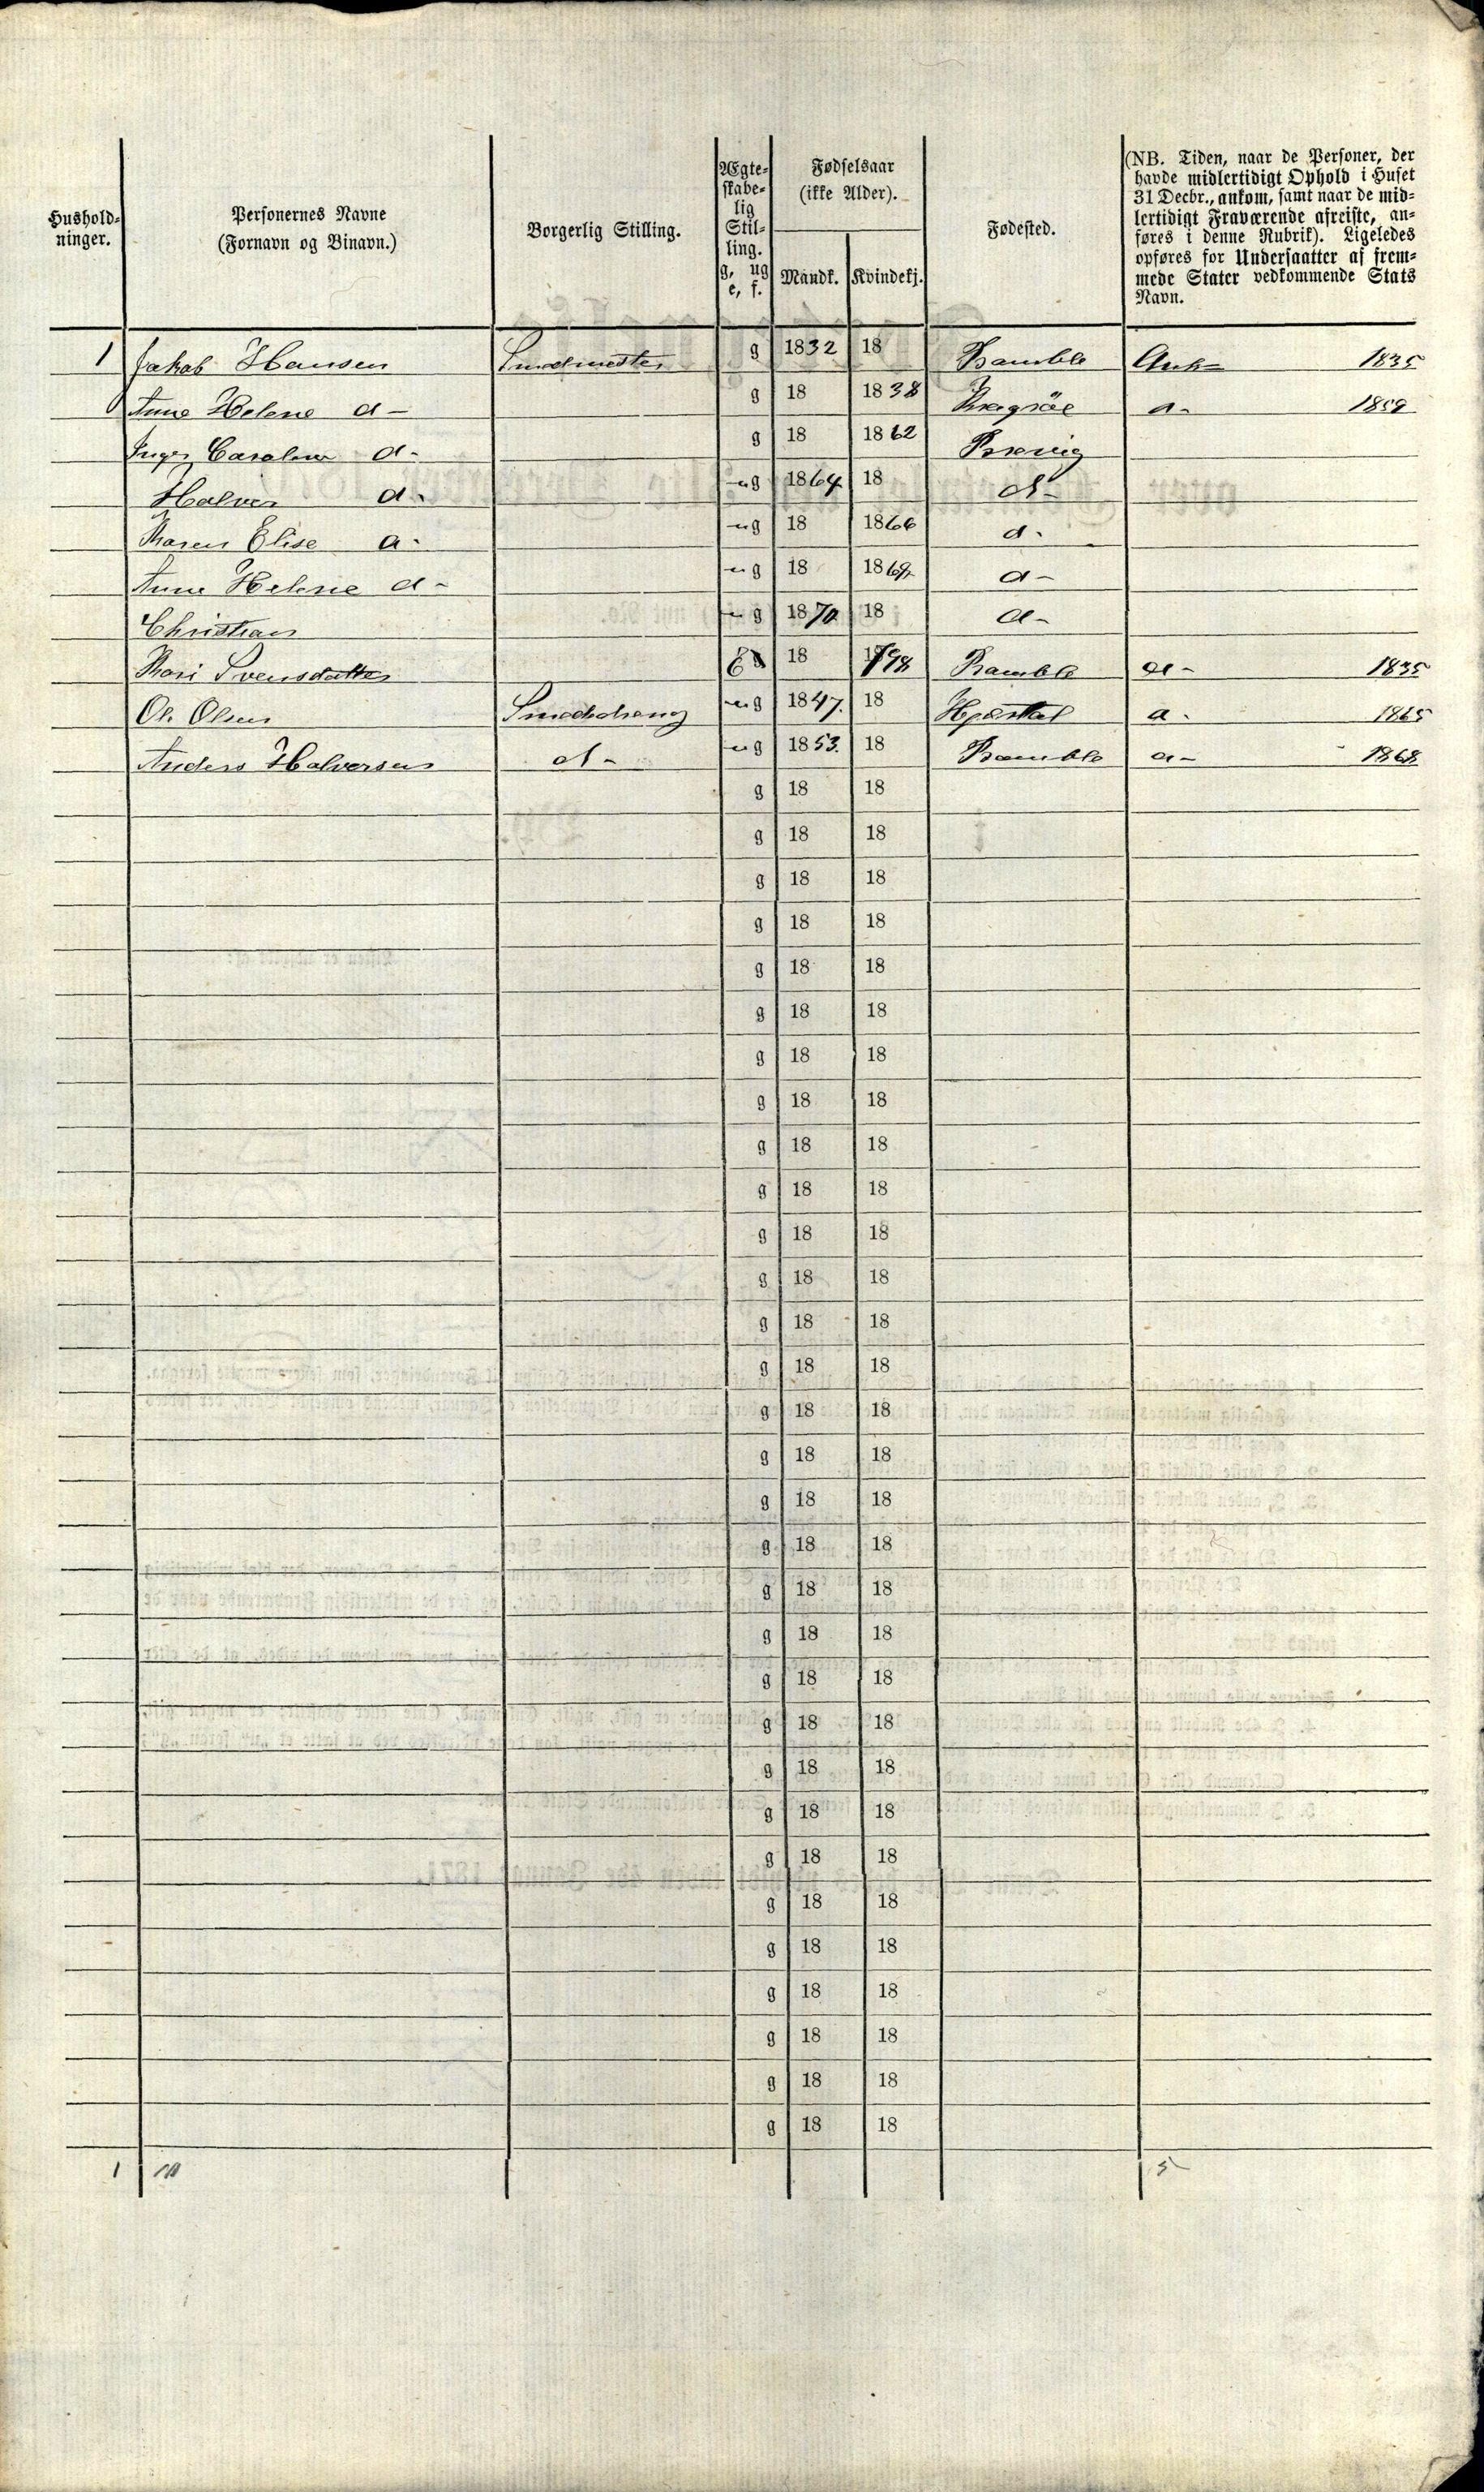 Hushold-
ninger.
Personernes Navne
(Fornavn og Binavn.)
Borgerlig Stilling.
Ægte-
skabe-
lig
Stil-
ling.
g, ug
e, f.
Fødselsaar
(ikke Alder).
Mandk.
Kvindekj.
Fødested.
(NB. Tiden, naar de Personer, der
havde midlertidigt Ophold i Huset
31 Decbr., ankom, samt naar de mid-
lertidigt Fraværende afreiste, an-
føres i denne Rubrik). Ligeledes
opføres for Undersaatter af frem-
mede Stater vedkommende Stats
Navn.
1 Jakob Hansen Smedmester g 1832 18 Bamble Ank 1835
Anne Helene d- g 18 1838 d- 1859
Inger Caroline d- g 18 1862 Brevig
Halvor d- ug 1864 18 d-
Karen Elise d- ug 18 1866 d-
Anne Helene d- ug 18 1869 d-
Christian ug 1870 18 d-
Kari Svensdatter E 18 1798 Bamble d- 1835
Ole Olsen Smeddreng ug 1847. 18 d- 1865
Anders Halvorsen d- ug 1853. 18 Bamble d- 1868
g 18 18
g 18 18
g 18 18
g 18 18
g 18 18
g 18 18
g 18 18
g 18 18
g 18 18
g 18 18
g 18 18
g 18 18
g 18 18
g 18 18
g 18 18
g 18 18
g 18 18
g 18 18
g 18 18
g 18 18
g 18 18
g 18 18
g 18 18
g 18 18
g 18 18
g 18 18
g 18 18
g 18 18
g 18 18
g 18 18
g 18 18
1 10 5